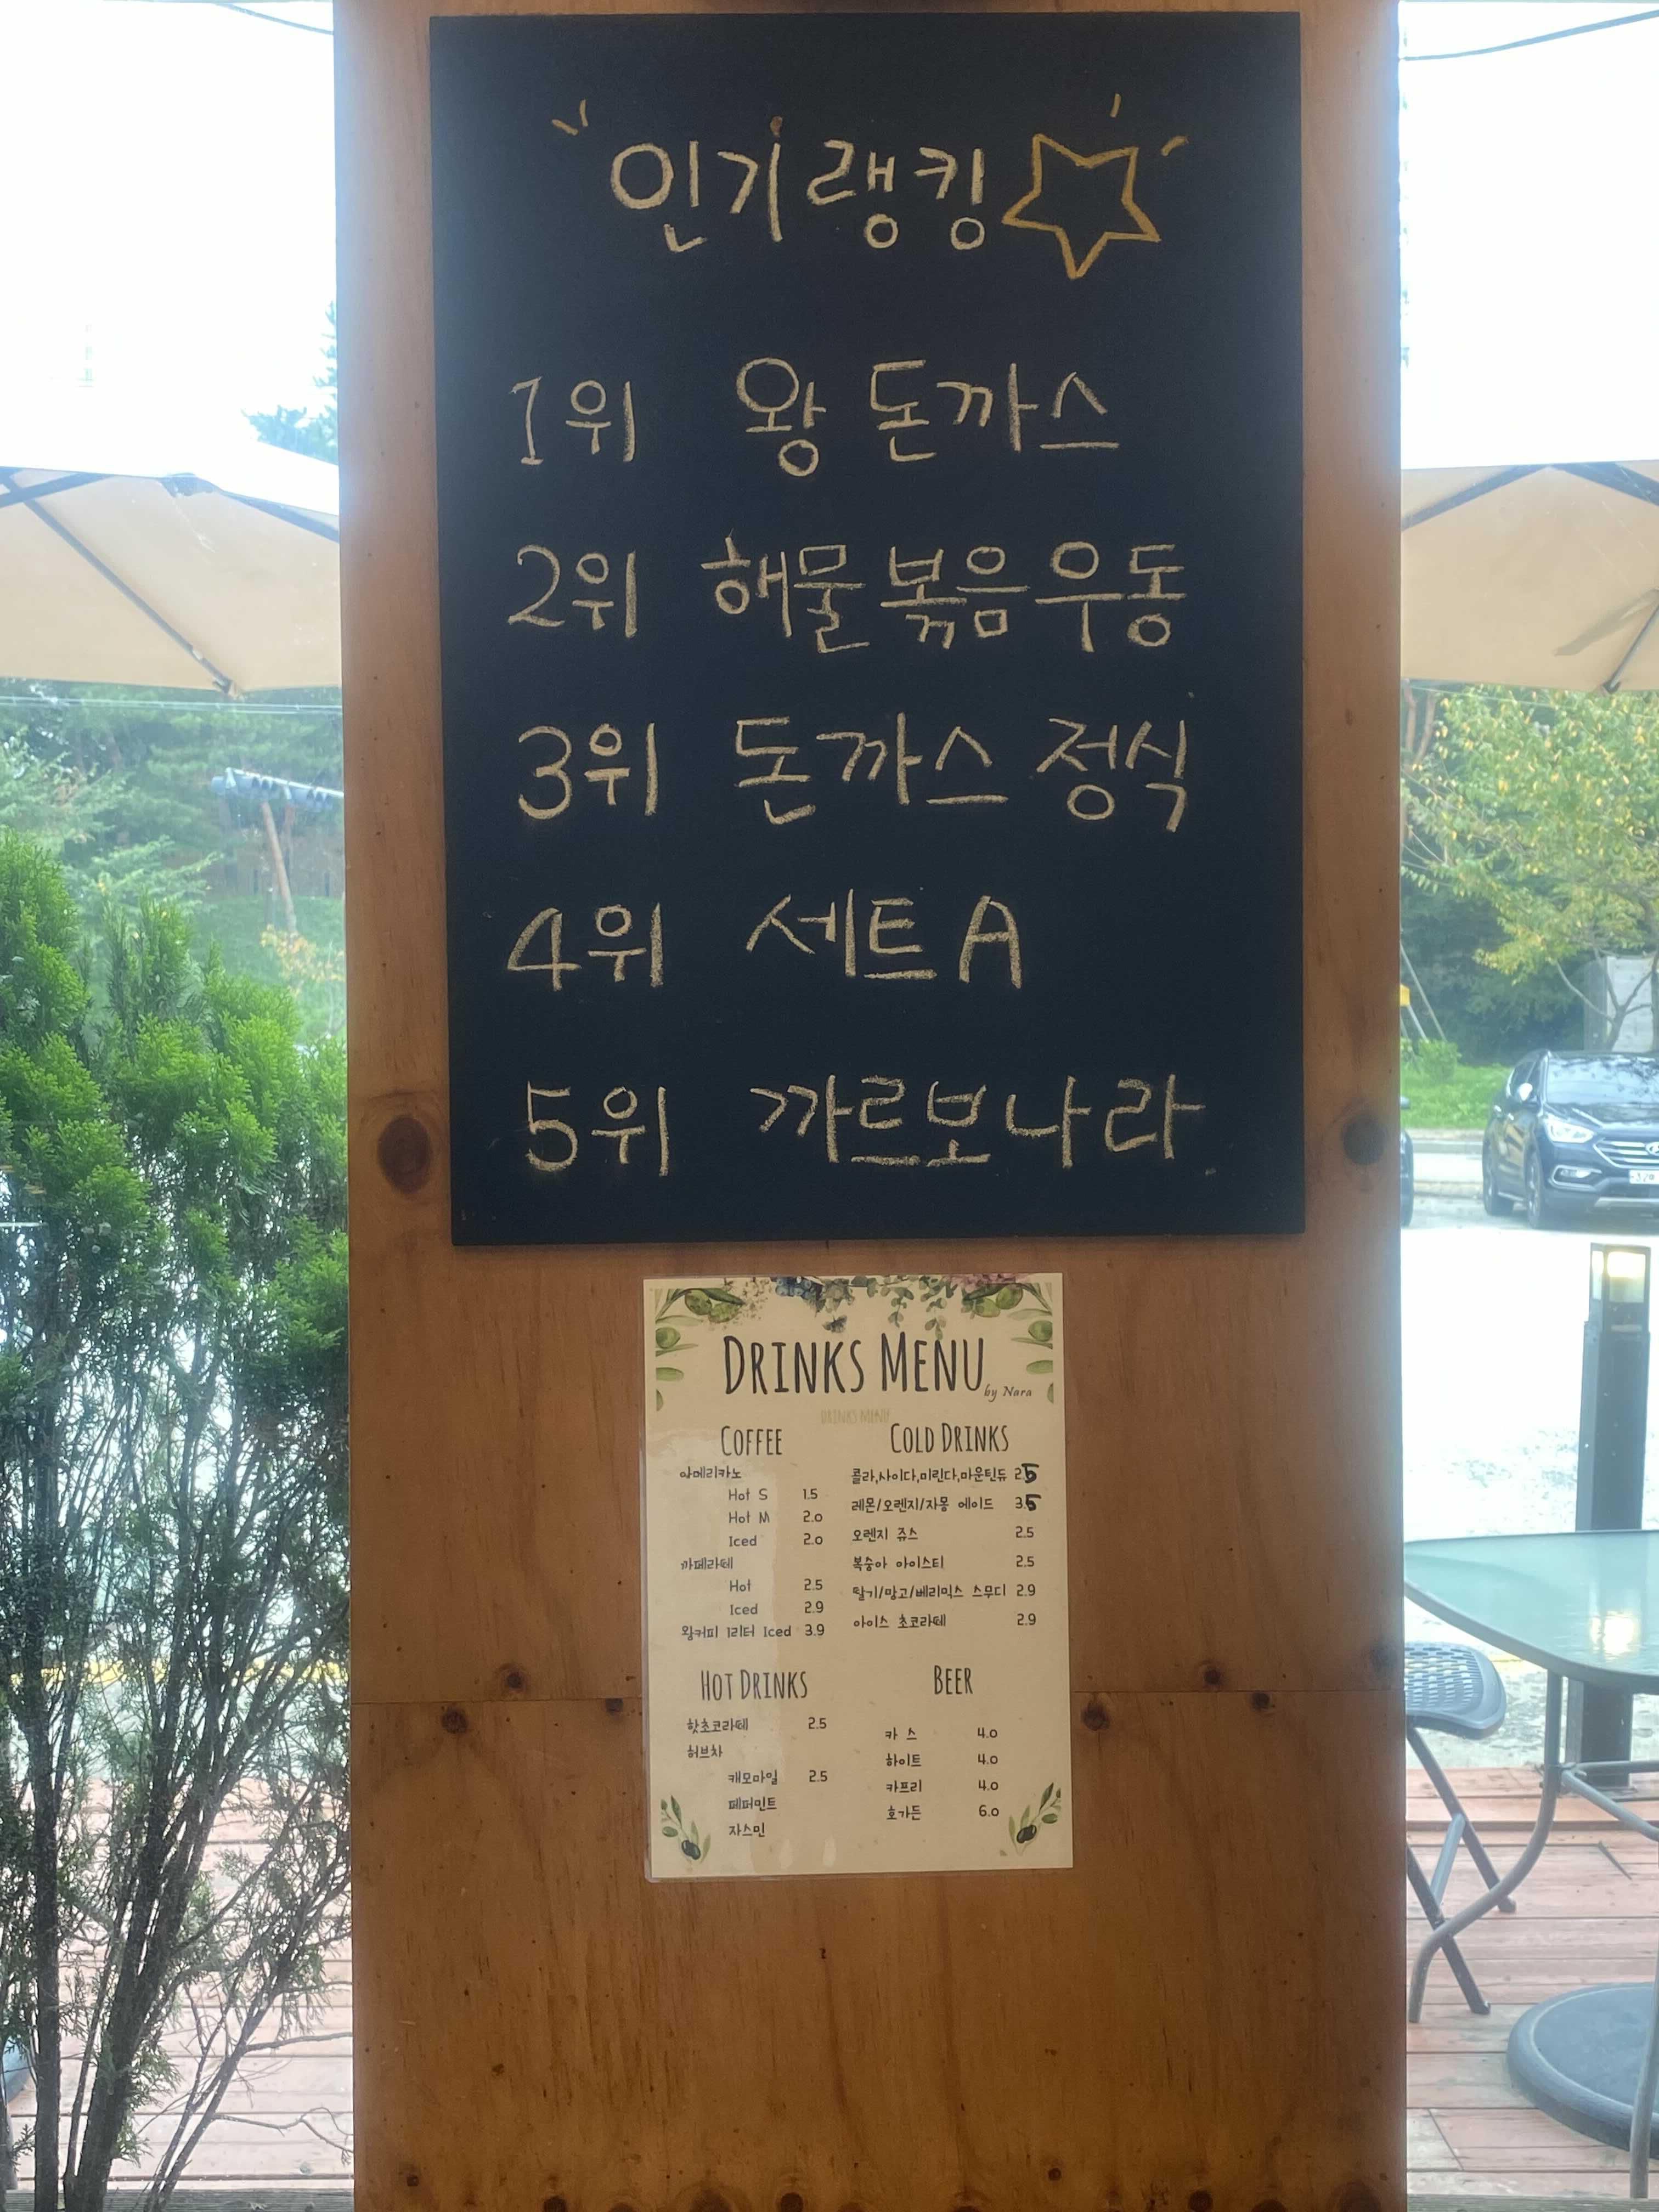 인기랭킹
1위 왕돈까스
2위 해물볶음우동
3위 돈까스 정식
4위 세트A
5위 까르보나라
DRINKS MENU
by Nara
DRINKS MENU
COFFEE
아메리카노
Hot S 1.5
Hot M 2.0
Iced 2.0
까페라떼
Hot 2.5
Iced 2.9
왕커피 1리터 Iced 3.9
COLD DRINKS
콜라,사이다,미린다,마운틴듀 2.5
레몬/오렌지/자몽 에이드 3.5
오렌지 쥬스 2.5
복숭아 아이스티 2.5
딸기/망고/베리믹스 스무디 2.9
아이스 초코라떼 2.9
HOT DRINKS
핫초코라떼 2.5
허브차
캐모마일 2.5
페퍼민트
자스민
BEER
카 스 4.0
하이트 4.0
카프리 4.0
호가든 6.0